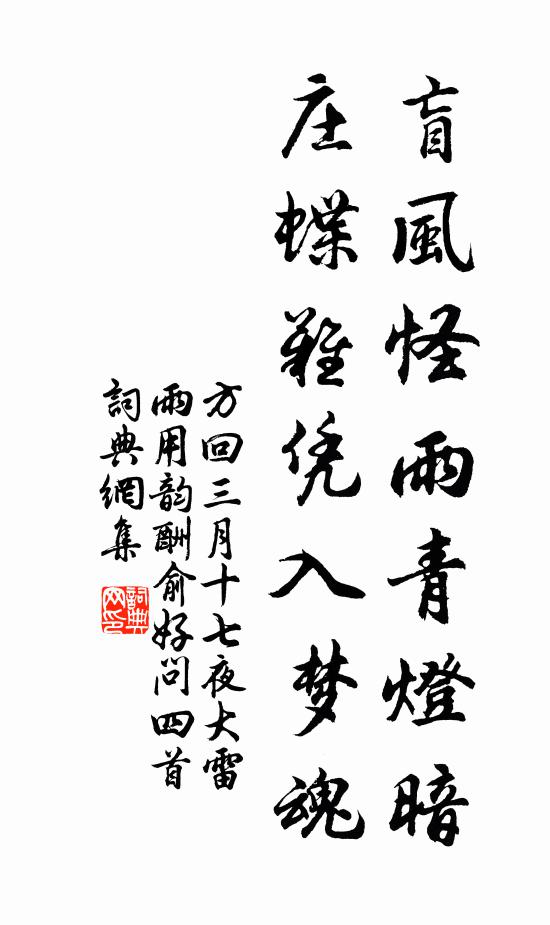 盲風怪雨青燈暗
庄蝶難凭入梦魂
方回三月十七夜大雷
雨用韵酬俞好问四首
詞典網集
詞典网印